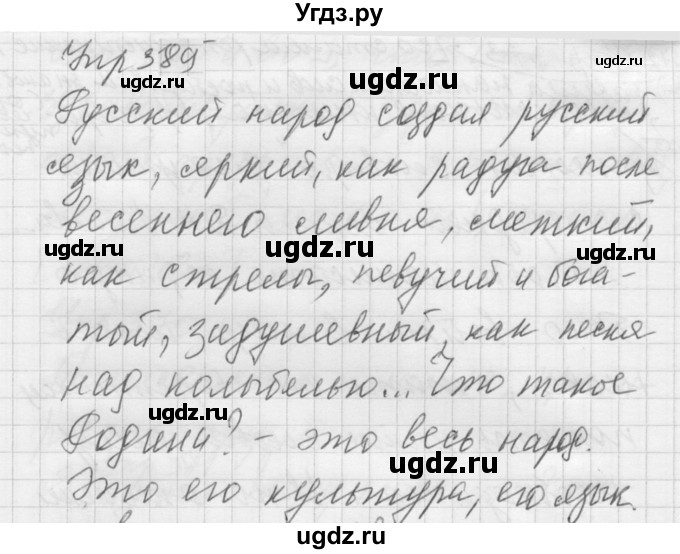 Угдз.ру
Упр 389
ugdz.ru
ugdz.ru
ugdz.ru
Русский народ создал русский
язык, яркий, как радуга после
весеннего ливня, меткий,
ugdz.ru
ugdz.ru
как стрелы, певучий и бога-
тый, задушевный, как песня
ugdz.ru
ugdz.ru
над колыбелью... Что такое
ugdz.ru
Родина? - это весь народ.
ugdz.ru
Это его культура, его язык.
ugdz.ru